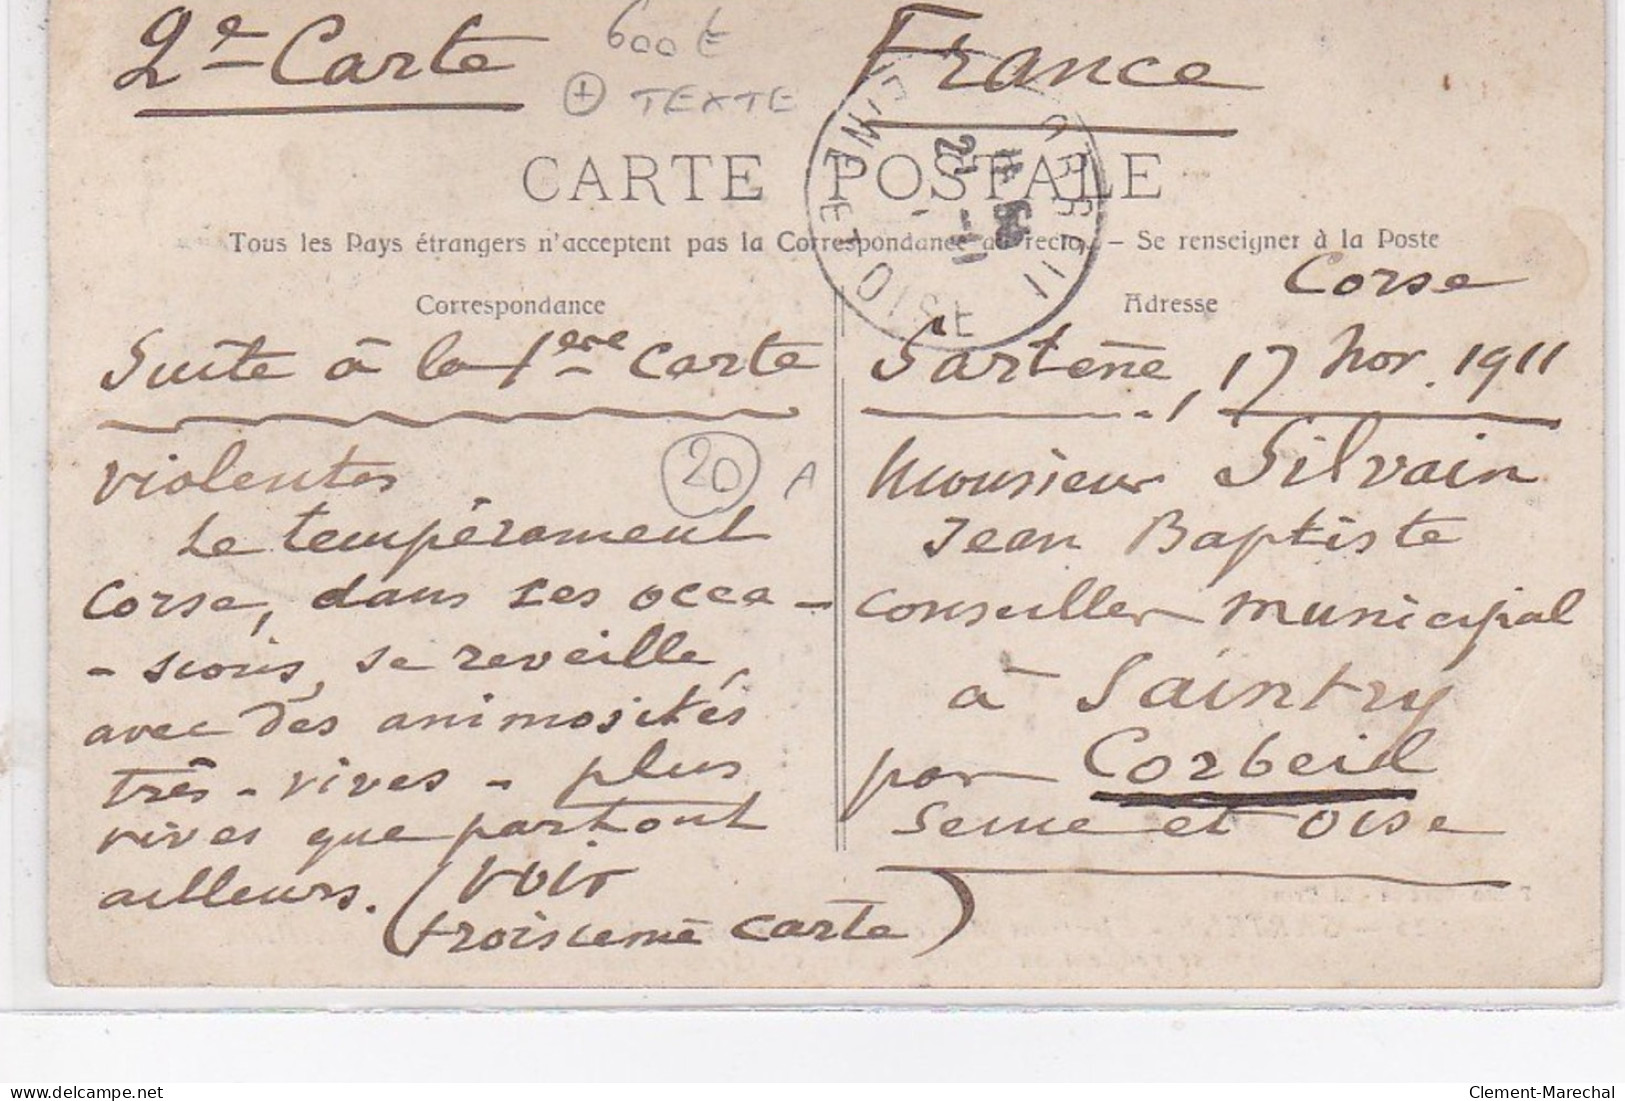 2e Carte
600 E
+ TEXTE
France
CARTE POSTALE
Tous les Pays étrangers n'acceptent pas la Correspondance au recto. – Se renseigner à la Poste
Correspondance
Suite à la 1ere Carte
violentes
20 A
Le tempérament
Corse, dans ses occa-
-sions, se reveille,
avec des animosités
très-vives - plus
vives que partout
ailleurs. (voir
troisieme carte)
Adresse
Corse
Sartène, 17 nov. 1911
Monsieur Silvain
Jean Baptiste
Conseiller municipal
à Saintry
par Corbeil
Seine et Oise
CORBEIL
SEINE ET OISE
21 -11
11
delcampe.net
Clement-Marechal